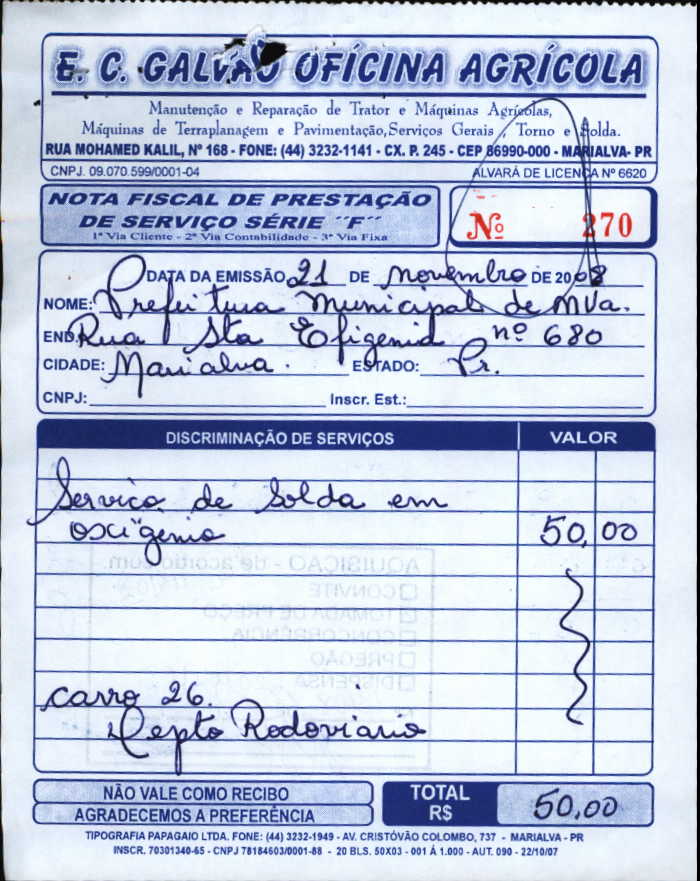 E. C. GALVÃO OFÍCINA AGRÍCOLA
Manutenção e Reparação de Trator e Máquinas Agrícolas,
Máquinas de Terraplanagem e Pavimentação,Serviços Gerais / Torno e Solda.
RUA MOHAMED KALIL, Nº 168 - FONE: (44) 3232-1141 - CX. P. 245 - CEP 86990-000 - MARIALVA- PR
CNPJ. 09.070.599/0001-04 ALVARÁ DE LICENÇA Nº 6620
NOTA FISCAL DE PRESTAÇÃO
DE SERVIÇO SÉRIE ´´F´´
1ª Via Cliente - 2ª Via Contabilidade - 3ª Via Fixa
Nº 270
DATA DA EMISSÃO 21 DE novembro DE 2008
NOME: Prefeitura Municipal de Mva.
END: Rua Sta Efigenia nº 680
CIDADE: Marialva. ESTADO: Pr.
CNPJ: Inscr. Est.:
DISCRIMINAÇÃO DE SERVIÇOS VALOR
Serviço de Solda em
oxigenio 50,00
AQUISIÇÃO - de acordo com
CONVITE
TOMADA DE PREÇO
CONCORRÊNCIA
PREGÃO
DISPENSA
carro 26.
Depto Rodoviario
NÃO VALE COMO RECIBO
AGRADECEMOS A PREFERÊNCIA
TOTAL
R$ 50,00
TIPOGRAFIA PAPAGAIO LTDA. FONE: (44) 3232-1949 - AV. CRISTÓVÃO COLOMBO, 737 - MARIALVA - PR
INSCR. 70301340-65 - CNPJ 78184603/0001-88 - 20 BLS. 50X03 - 001 Á 1.000 - AUT. 090 - 22/10/07